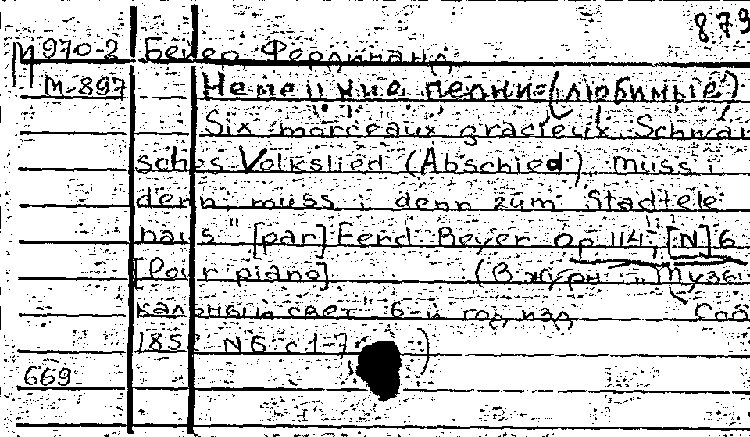 879
М 970-2 Бейер Фердинанд
М-897 Немецкие песни (любимые)
Six morceaux gracieux. Schwäb
sches Volkslied (Abschied) "Muss i
denn, muss i denn zum Städtele
haus" [par] Ferd. Beyer Op. 114, [N] 6
[Pour piano] (В журн. "Музы
кальный свет" 6-й год изд.
185 N 6 с 1-7)
669